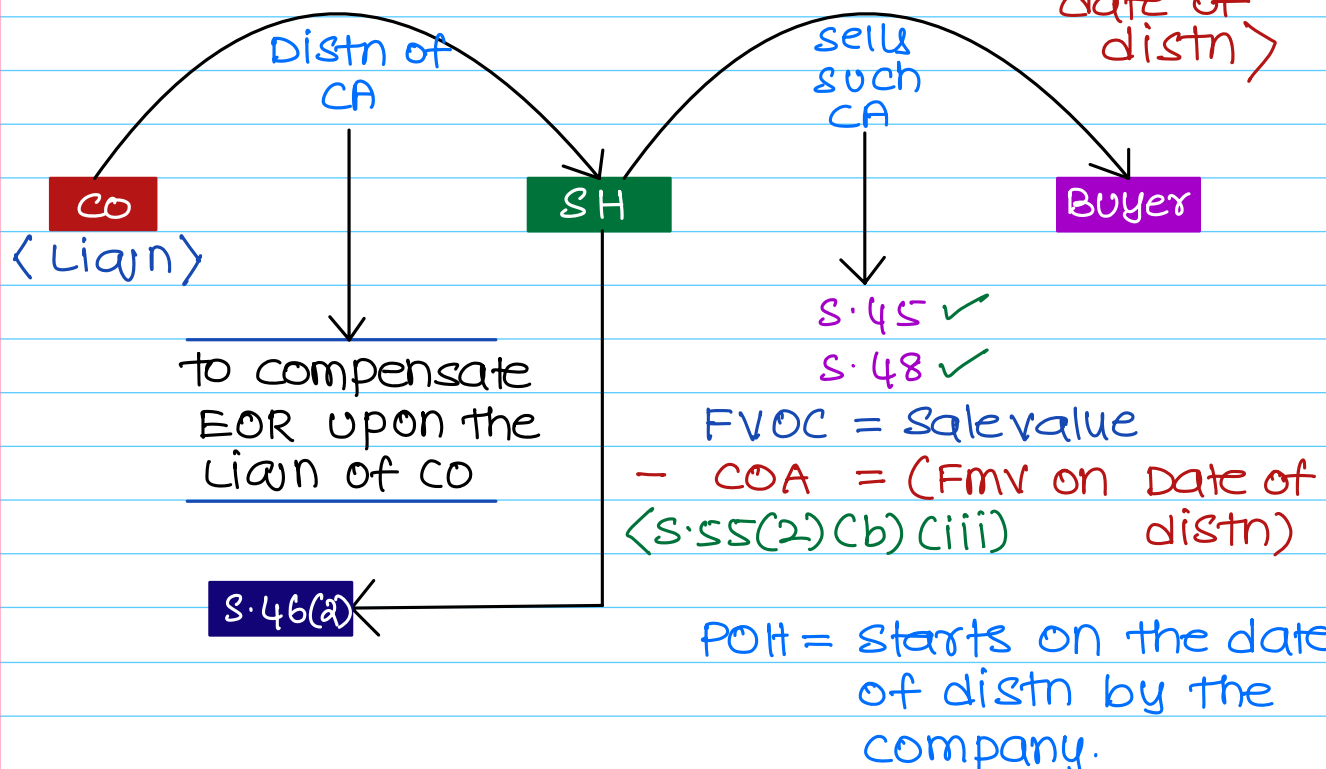 date of
distn >
Distn of
CA
sells
such
CA
CO
SH
Buyer
< Liqn >
to compensate
EOR upon the
Liqn of CO
S.45 ✓
S.48 ✓
FVOC = Salevalue
- COA = (FMV on Date of
<S.55(2)(b)(iii) distn)
S.46(2)
POH = starts on the date
of distn by the
company.